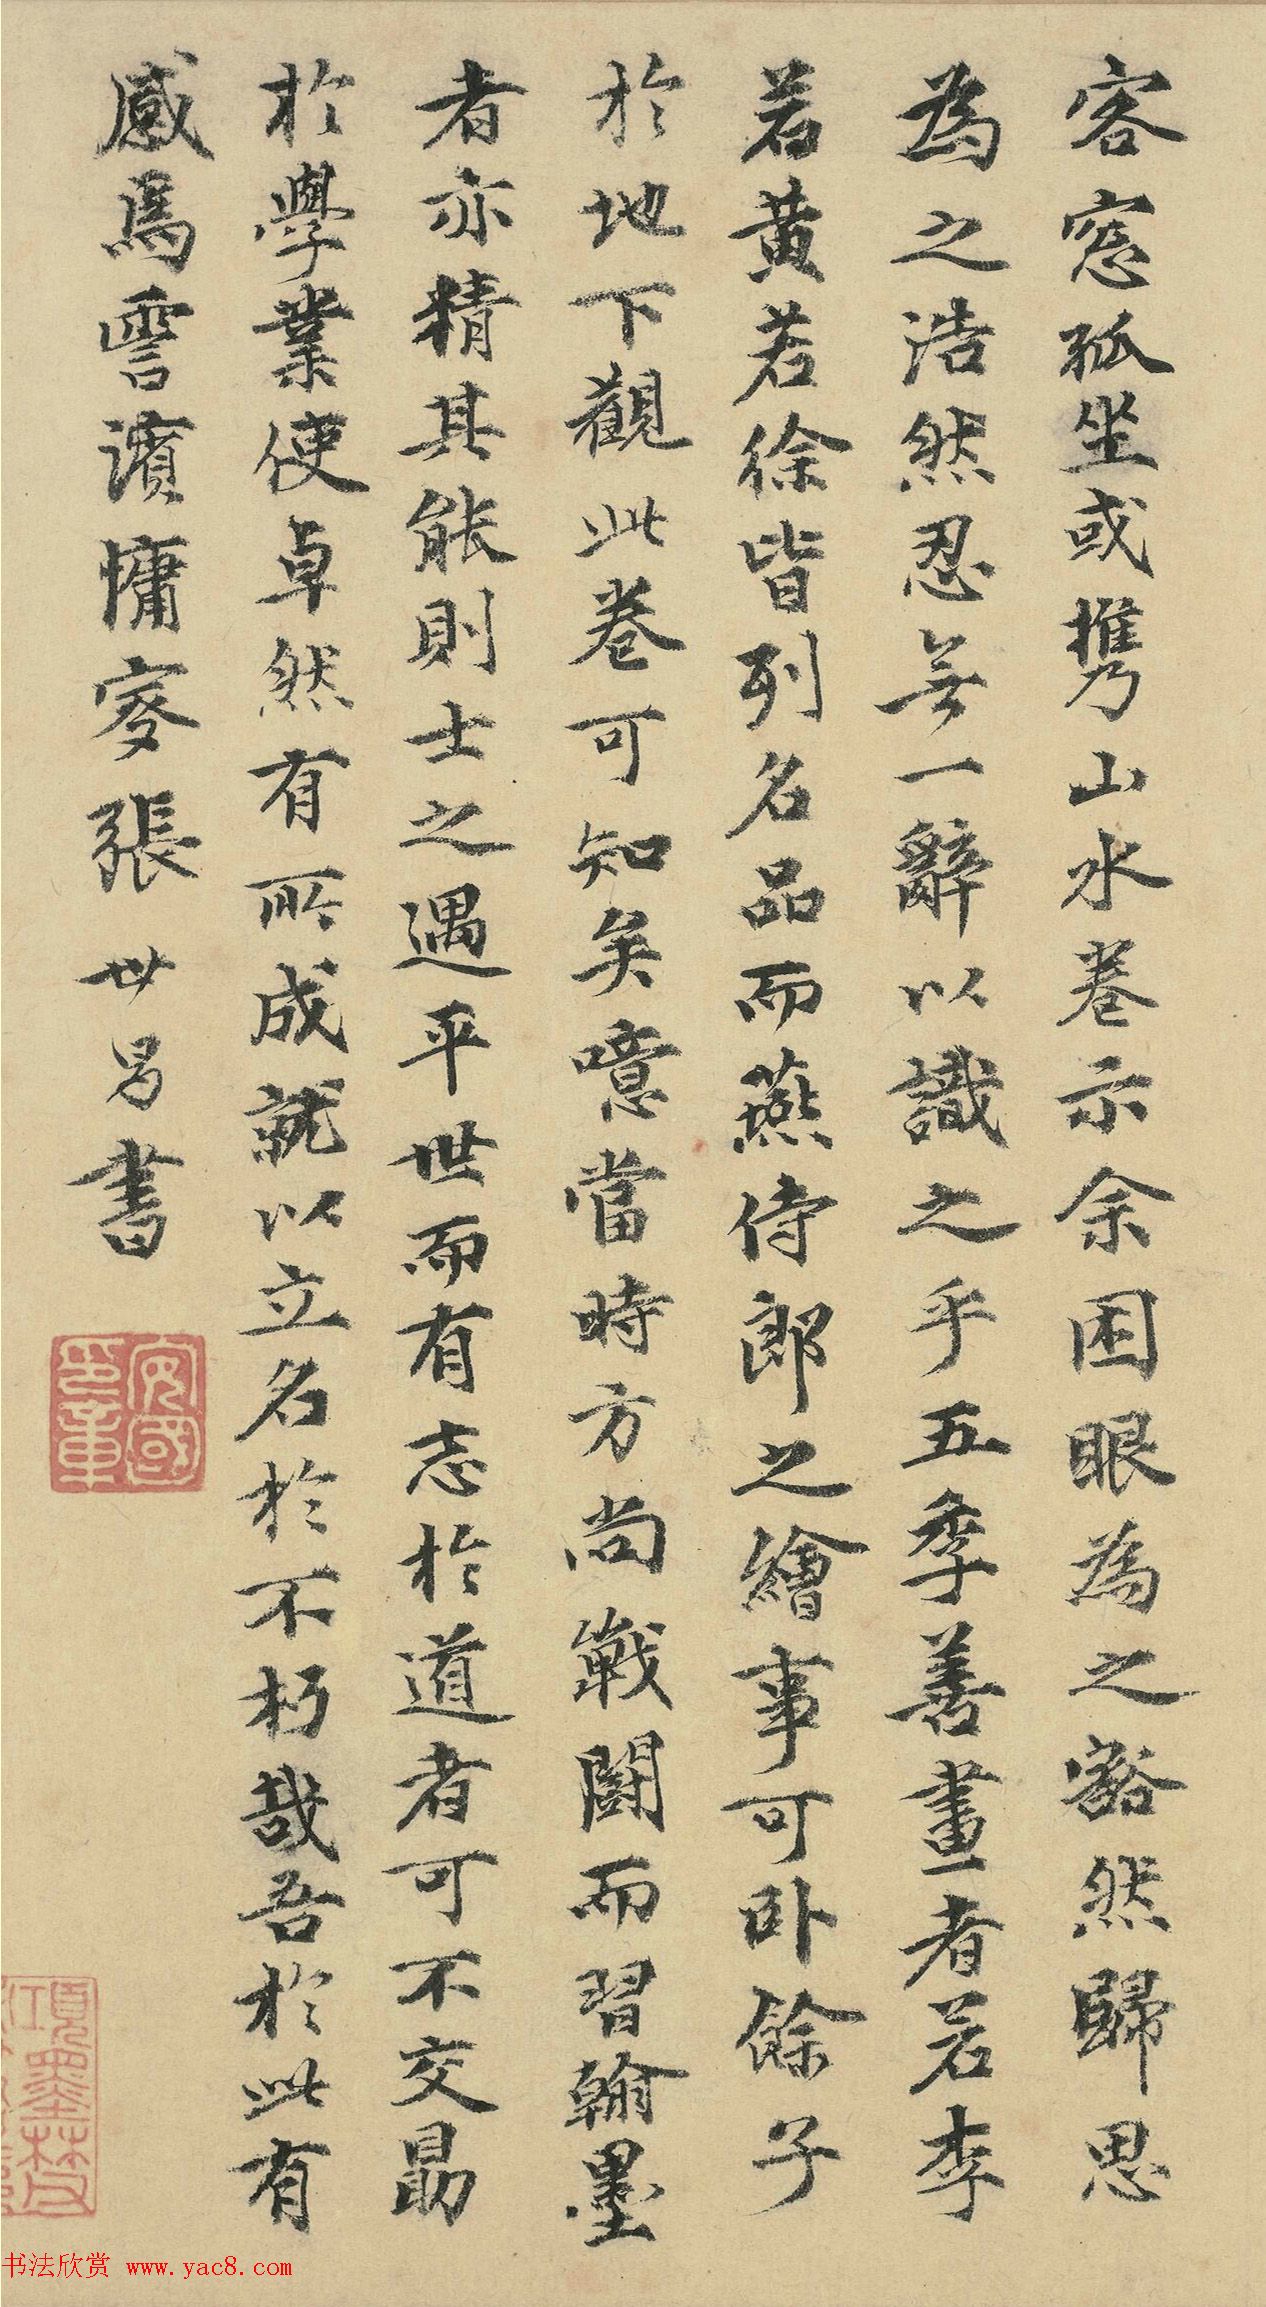 客窓孤坐或携山水卷示余困眼為之豁然歸思
為之浩然忍無一辭以識之乎五季善畫者若李
若黃若徐皆列名品而燕侍郎之繪事可卧餘子
於地下觀此卷可知矣噫當時方尚戰鬭而習翰墨
者亦精其能則士之遇平世而有志於道者可不交勗
於學業使卓然有所成就以立名於不朽哉吾於此有
感焉雪濱慵叟張世昌書
安國
書法欣赏 www.yac8.com